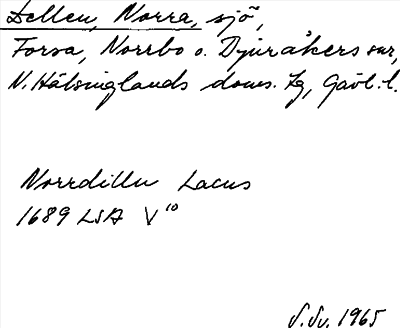 Dellen, Norra, sjö,
Forsa, Norrbo o. Djuråkers snr,
N. Hälsinglands doms. tg, Gävl. l.
Norrdillen Lacus
1689 LSA V¹⁰
S.Sv. 1965